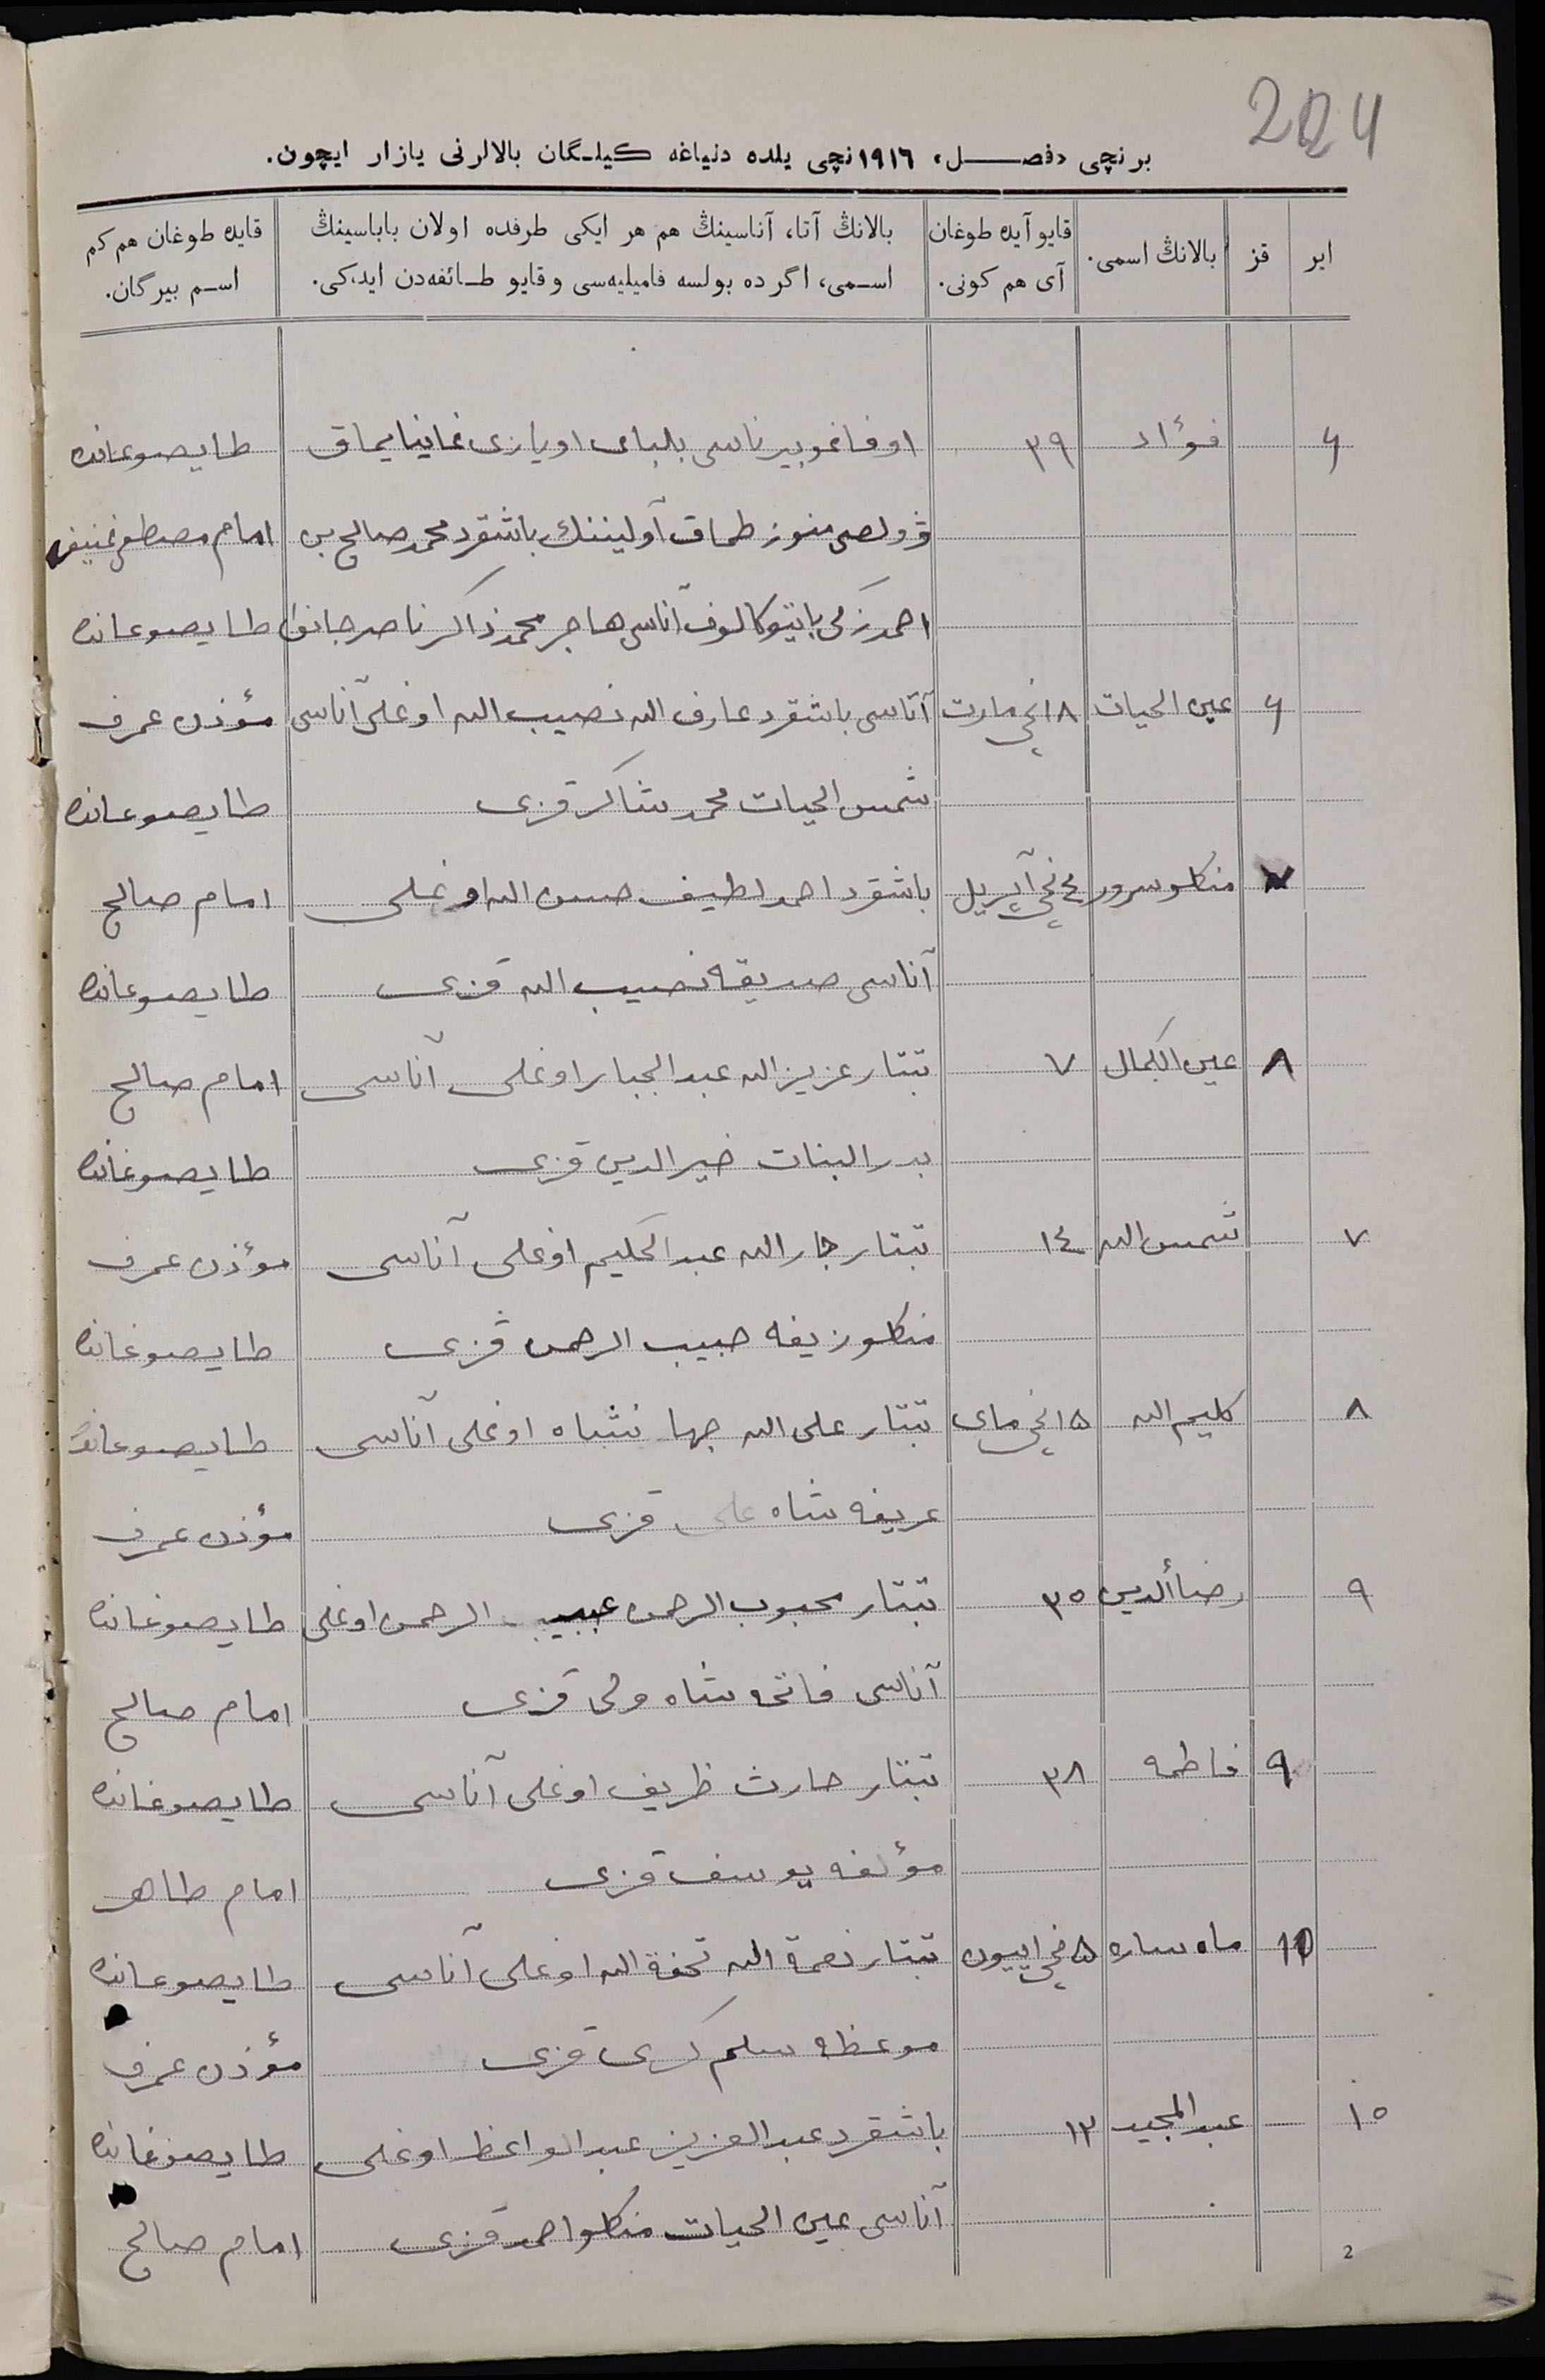 204
برنچی «فصل» ١٩١٦نچی یلده دنیاغه كیلگان بالالرنی یازار ایچون.
ایر
قز
بالانڭ اسمی.
قایو آیده طوغان آی هم كونی.
بالانڭ آتا، آناسینڭ هم هر ایكی طرفده اولان باباسینڭ اسمی، اگر ده بولسه فامیلیه‌سی و قایو طائفه‌دن ایدكی.
قایده طوغان هم كم اسم بیرگان.
٦ فؤاد ٢٩ اوفا غوبیرناسی بلبای اویازی غاینا یماق طایصوغانده
ڤولصی منوز طماق آولیننك باشقرد محمد صالح بن امام مصطفی
احمد زكی بانیوكالوف آناسی هاجر محمد ذاكر ناصر جانوا طایصوغانده
٦ عین الحیات ١٨نچی مارت آتاسی باشقرد عارف الله نصیب الله اوغلی آناسی مؤذن عمرف
شمس الحیات محمد شاكر قزی طایصوغانده
٧ منكلو سرور ٤نچی آپریل باشقرد احمد لطیف حسن الله اوغلی امام صالح
آناسی صدیقه نصیب الله قزی طایصوغانده
٨ عین الكمال ٧ تتار عزیز الله عبد الجبار اوغلی آناسی امام صالح
بدر البنات خیر الدین قزی طایصوغانده
٧ شمس الله ١٤ تتار جار الله عبد الحكیم اوغلی آناسی مؤذن عمرف
منكلو زیفه حبیب الرحمن قزی طایصوغانده
٨ كلیم الله ١٥نچی مای تتار علی الله جهانشاه اوغلی آناسی طایصوغانده
عریفه شاه علی قزی مؤذن عمرف
٩ رضاألدین ٢٥ تتار محبوب الرحمن حبیب الرحمن اوغلی طایصوغانده
آناسی فاتحه شاه ولی قزی امام صالح
٩ فاطمه ٢٨ تتار حارث ظریف اوغلی آناسی طایصوغانده
مؤلفه یوسف قزی امام طاهر
10 ماه ساره ٥نچی اییون تتار نعمة الله تحفة الله اوغلی آناسی طایصوغانده
موعظه سلم كری قزی مؤذن عمرف
١٥ عبد المجید ١٣ باشقرد عبد العزیز عبد الواعظ اوغلی طایصوغانده
آناسی عین الحیات منكلو احمد قزی امام صالح
2